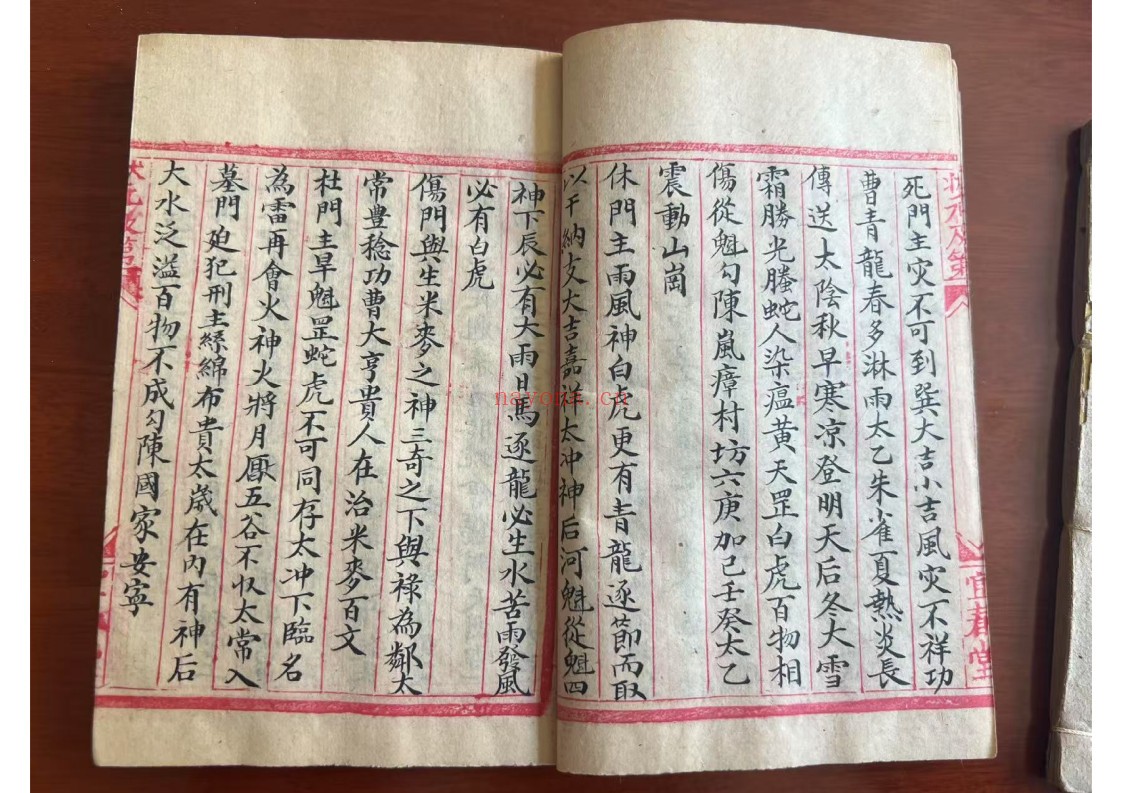 死門主灾不可到巽大吉小吉風灾不祥功
曹青龍春多淋雨太乙朱雀夏熱炎長
傳送太陰秋早寒凉登明天后冬大雪
霜勝光螣蛇人染瘟黃天罡白虎百物相
傷從魁勾陳嵐瘴村坊六庚加己壬癸太乙
震動山崗
休門主雨風神白虎更有青龍逐節而取
以干納支大吉嘉祥太冲神后河魁從魁四
神下辰必有大雨日馬逐龍必生水苦雨發風
必有白虎
傷門與生米麥之神三奇之下與祿為鄰太
常豊稔功曹大亨貴人在治米麥百文
杜門主旱魁罡蛇虎不可同存太冲下臨名
為雷再會火神火將月厭五谷不収太常入
墓門廹犯刑主絲綿布貴太歲在內有神后
大水泛溢百物不成勾陳國家安寧
狀元及第
宜春堂
nayona.cn